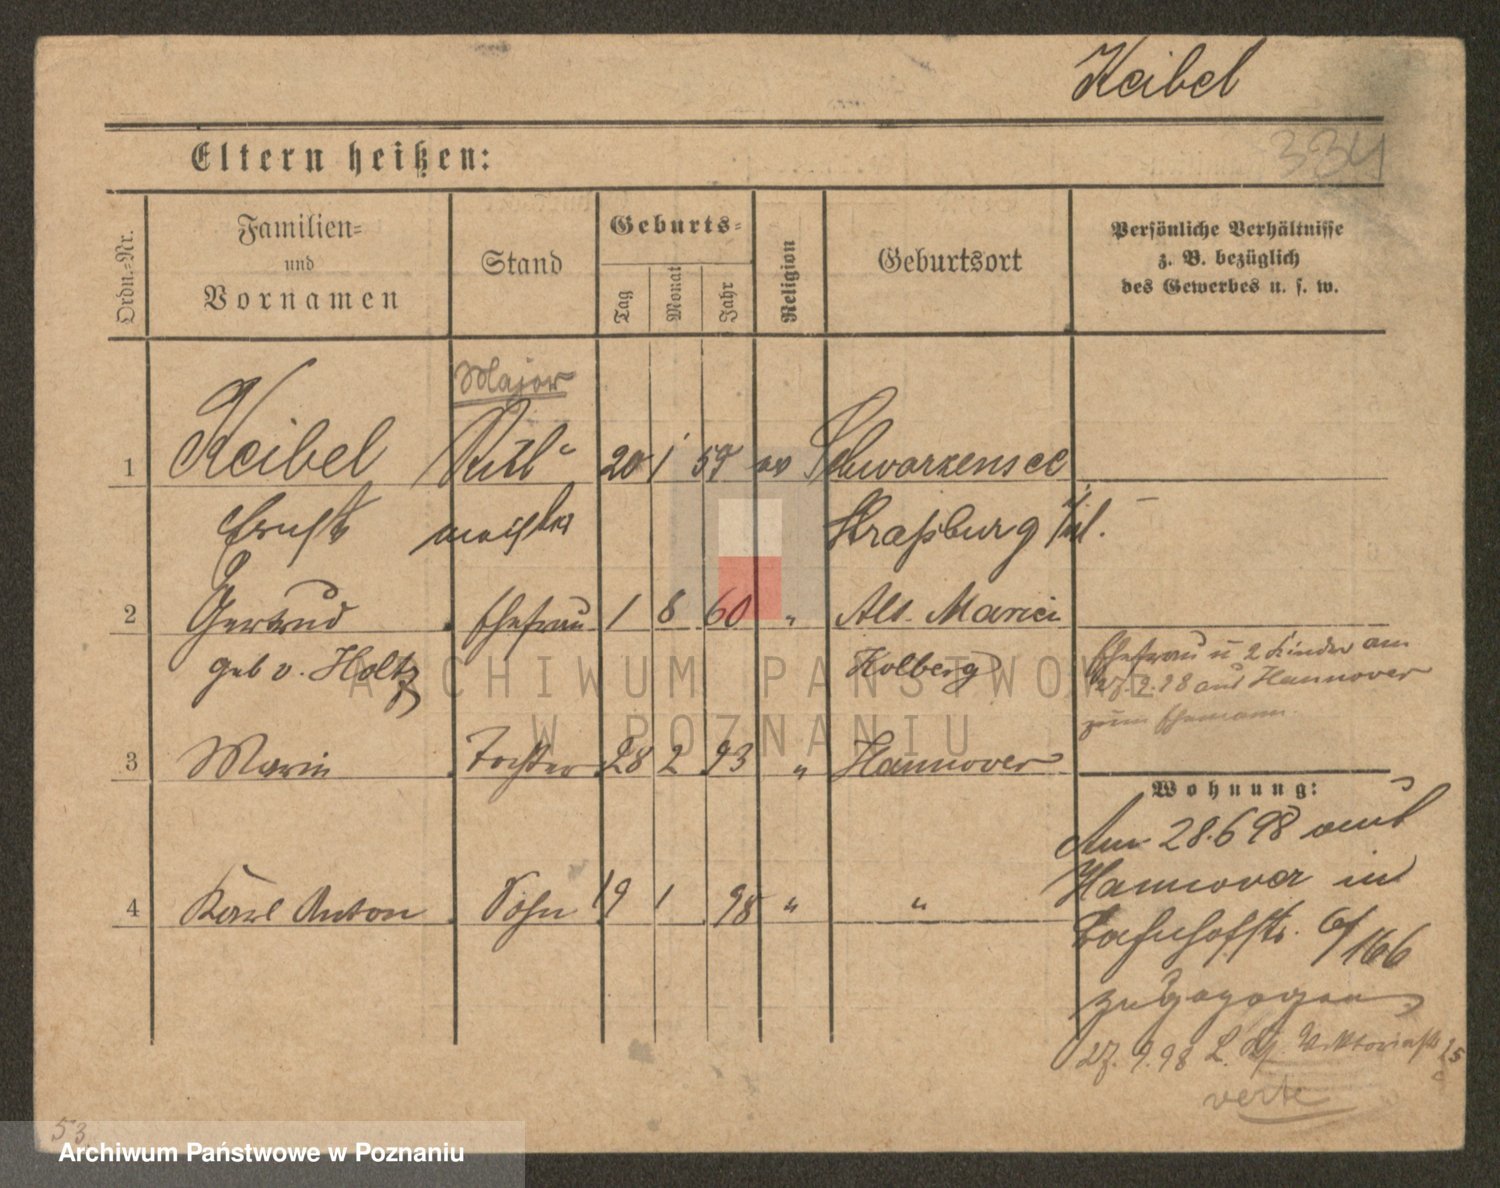 Keibel
334
Eltern heißen:
Ordn.=Nr.
Familien=
und
Vornamen
Stand
Geburts=
Tag
Monat
Jahr
Religion
Geburtsort
Persönliche Verhältnisse
z. B. bezüglich
des Gewerbes u. s. w.
Major
1 Keibel Ritt- 20 1 59 ev Schwarzensee
Ernst meister Straßburg
2 Gertrud Ehefrau 1 8 60 " Alt-Marin
geb v. Holtz Kolberg
Ehefrau u 2 Kinder am
27.9.98 aus Hannover
zum Ehemann.
3 Marie Tochter 28 2 93 " Hannover
Wohnung:
4 Karl Anton Sohn 19 1 98 " "
Am 28.6 98 aus
Hannover in
Bahnhofstr. 6/166
zugezogen
27.9.98 Viktoriastr 25
verte
53
ARCHIWUM PAŃSTWOWE
W POZNANIU
Archiwum Państwowe w Poznaniu